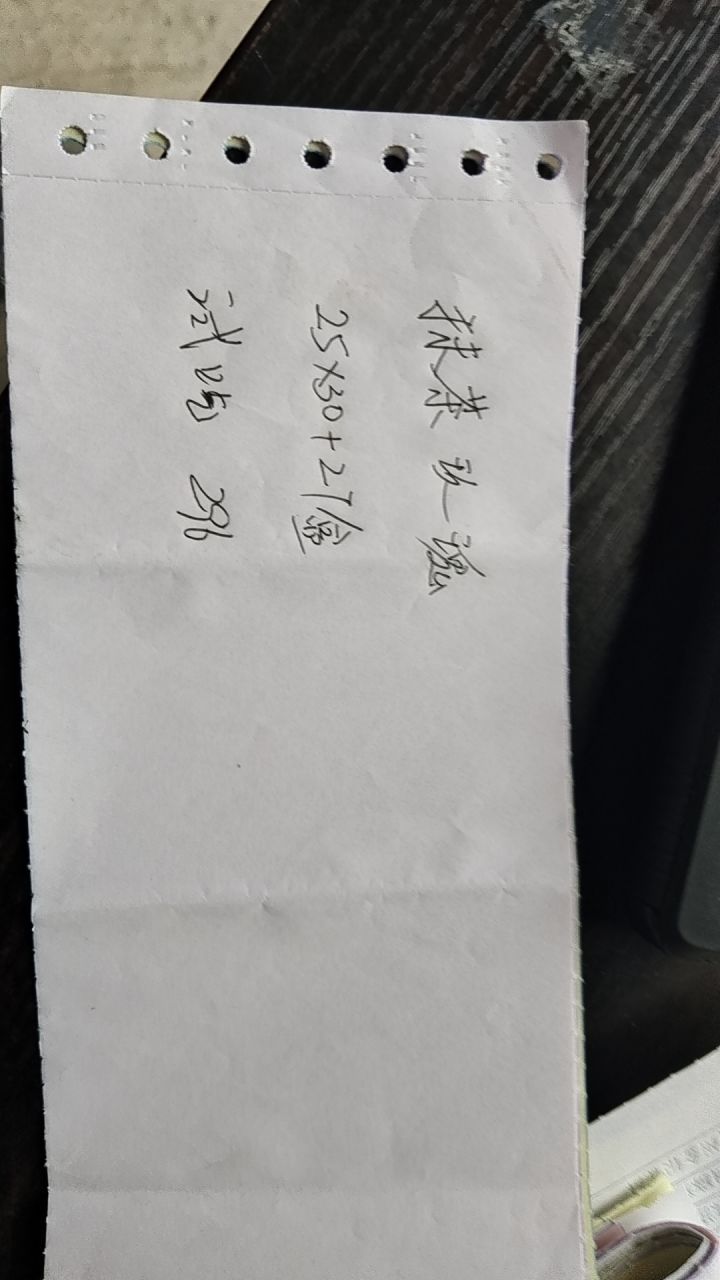 抹茶玖谧
25×30+21盒
试吃 296